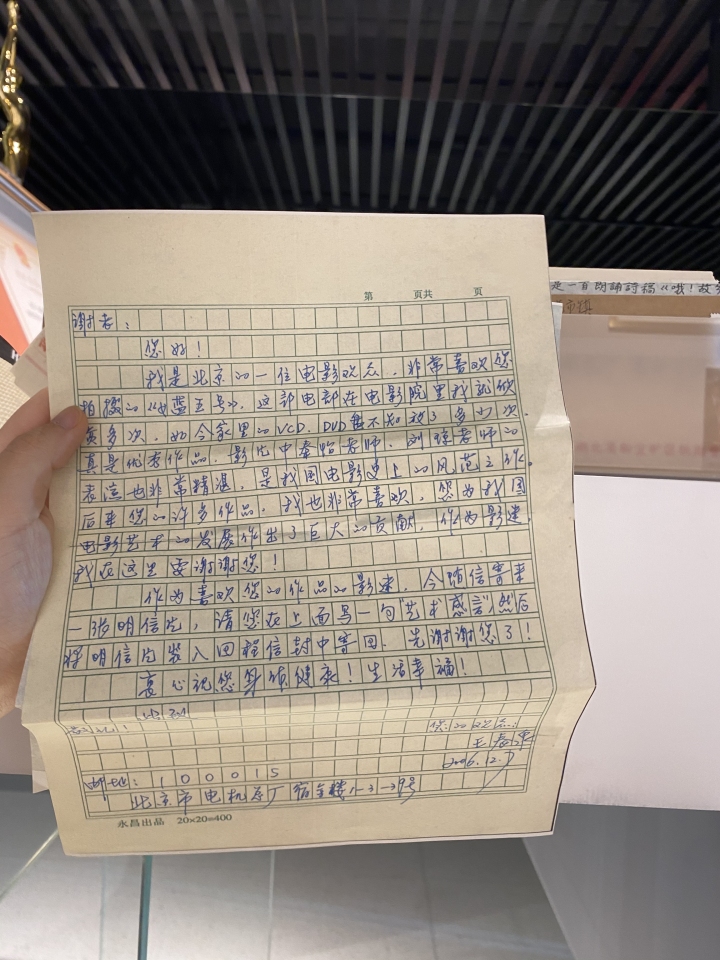 第 页共 页
谢老：
您好！
我是北京的一位电影观众，非常喜欢您
拍摄的《女篮五号》，这部电影在电影院里我就欣
赏多次，如今家里的VCD、DVD 不知放了多少次，
真是优秀作品。影片中秦怡老师、刘琼老师的
表演也非常精湛，是我国电影史上的风范之作。
后来您的许多作品，我也非常喜欢，您为我国
电影艺术的发展作出了巨大的贡献，作为影迷
我在这里要谢谢您！
作为喜欢您的作品的影迷，今随信寄来
一张明信片，请您在上面写一句"艺术感言"，然后
将明信片装入回程信封中寄回。先谢谢您了！
衷心祝您身体健康！生活幸福！
此致
您的观众：
王
2006.12.7
邮址：100015
北京市电机总厂宿舍楼1-3-9号
永昌出品 20×20=400
是一首朗诵诗稿《哦！故